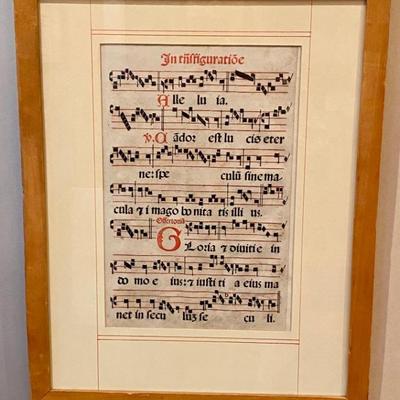 In trāſfiguratiōe
Alle lu ia.
℣. Cādor eſt lu cis eter
ne: ſpe culū ſine ma
cula ⁊ i mago bo nita tis illi us.
Offertoriū
Gloria ⁊ divitie in
do mo e ius: ⁊ iuſti ti a eius ma
net in ſecu luʒ ſe cu li.